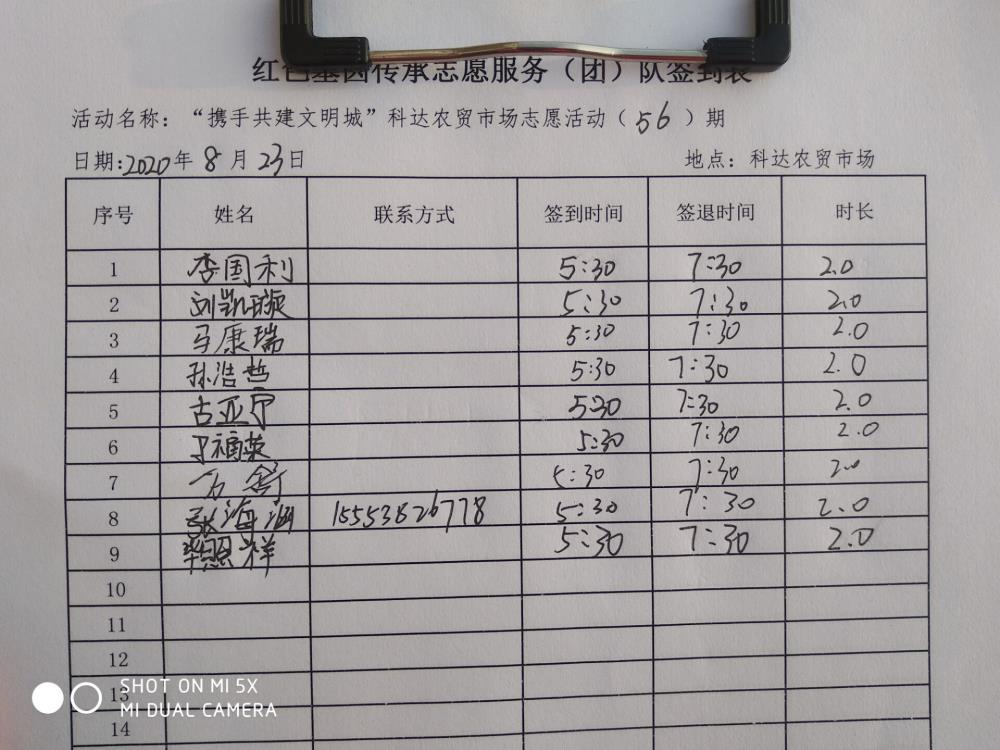 红色基因传承志愿服务（团）队签到表
活动名称：“携手共建文明城”科达农贸市场志愿活动（56）期
日期:2020年8月23日 地点：科达农贸市场
序号 姓名 联系方式 签到时间 签退时间 时长
1 李国利 5:30 7:30 2.0
2 刘凯璇 5:30 7:30 2.0
3 马康瑞 5:30 7:30 2.0
4 孙浩哲 5:30 7:30 2.0
5 古亚宁 5:30 7:30 2.0
6 5:30 7:30 2.0
7 万舒 5:30 7:30 2.0
8 张海涵 15553826778 5:30 7:30 2.0
9 5:30 7:30 2.0
10
11
12
13
14
SHOT ON MI 5X
MI DUAL CAMERA